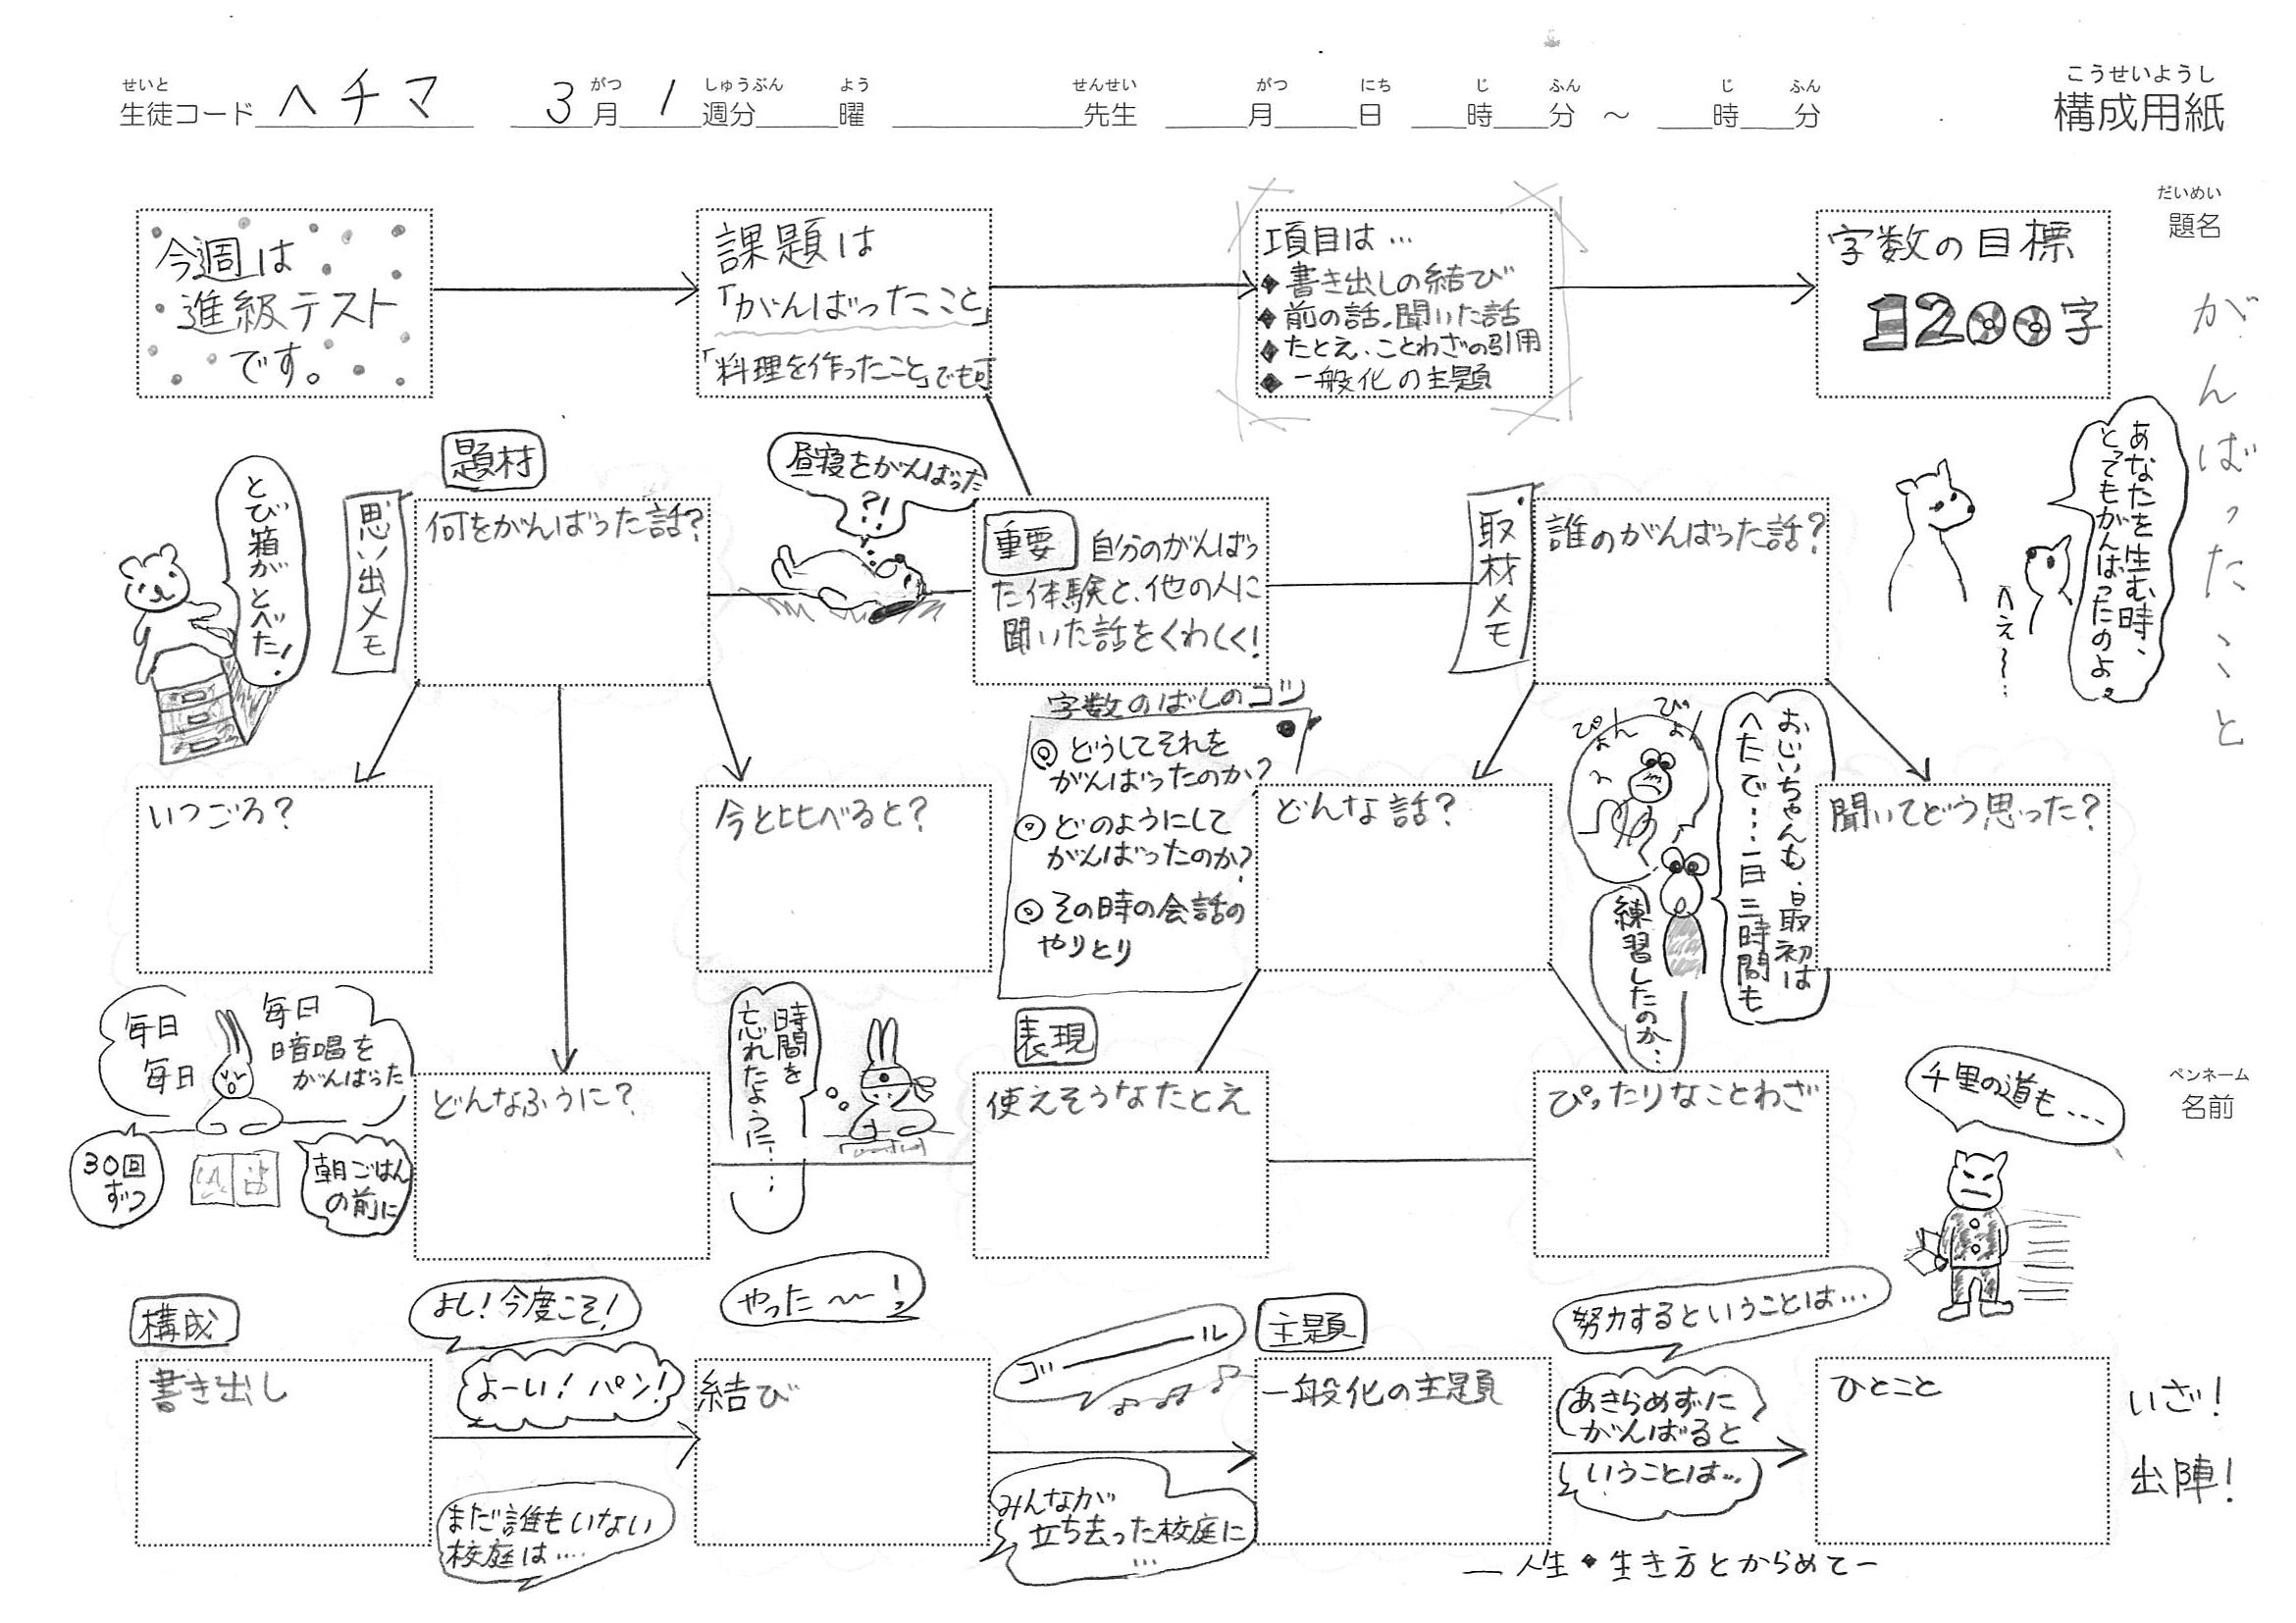 せいと
生徒コード ヘチマ
がつ
3月
しゅうぶん
1週分
よう
曜
せんせい
先生
がつ
月
にち
日
じ
時
ふん
分
～
じ
時
ふん
分
こうせいようし
構成用紙
だいめい
題名
がんばったこと
今週は
進級テスト
です。
課題は
「がんばったこと」
「料理を作ったこと」でも可
項目は…
◆書き出しの結び
◆前の話、聞いた話
◆たとえ、ことわざの引用
◆一般化の主題
字数の目標
1200字
とび箱がとべた!
思い出メモ
題材
何をがんばった話?
昼寝をがんばった
?!
重要 自分のがんばっ
た体験と、他の人に
聞いた話をくわしく!
取材メモ
誰のがんばった話?
あなたを生む時、
とってもがんばったのよ。
へえ〜…
いつごろ?
今と比べると?
字数のばしのコツ
◎どうしてそれを
がんばったのか?
◎どのようにして
がんばったのか?
◎その時の会話の
やりとり
どんな話?
ぴょん
ぴょん
おじいちゃんも、最初は
へたで…一日三時間も
練習したのか…
聞いてどう思った?
毎日
毎日
毎日
暗唱を
がんばった
30回
ずつ
朝ごはん
の前に
どんなふうに?
時間を
忘れたように……
表現
使えそうなたとえ
ぴったりなことわざ
千里の道も…
ペンネーム
名前
構成
書き出し
よし!今度こそ!
よーい!パン!
まだ誰もいない
校庭は….
やった〜〜!
結び
ゴール
みんなが
立ち去った校庭に
…
主題
一般化の主題
努力するということは…
あきらめずに
がんばると
いうことは…
ひとこと
いざ!
出陣!
ー人生◆生き方とからめてー